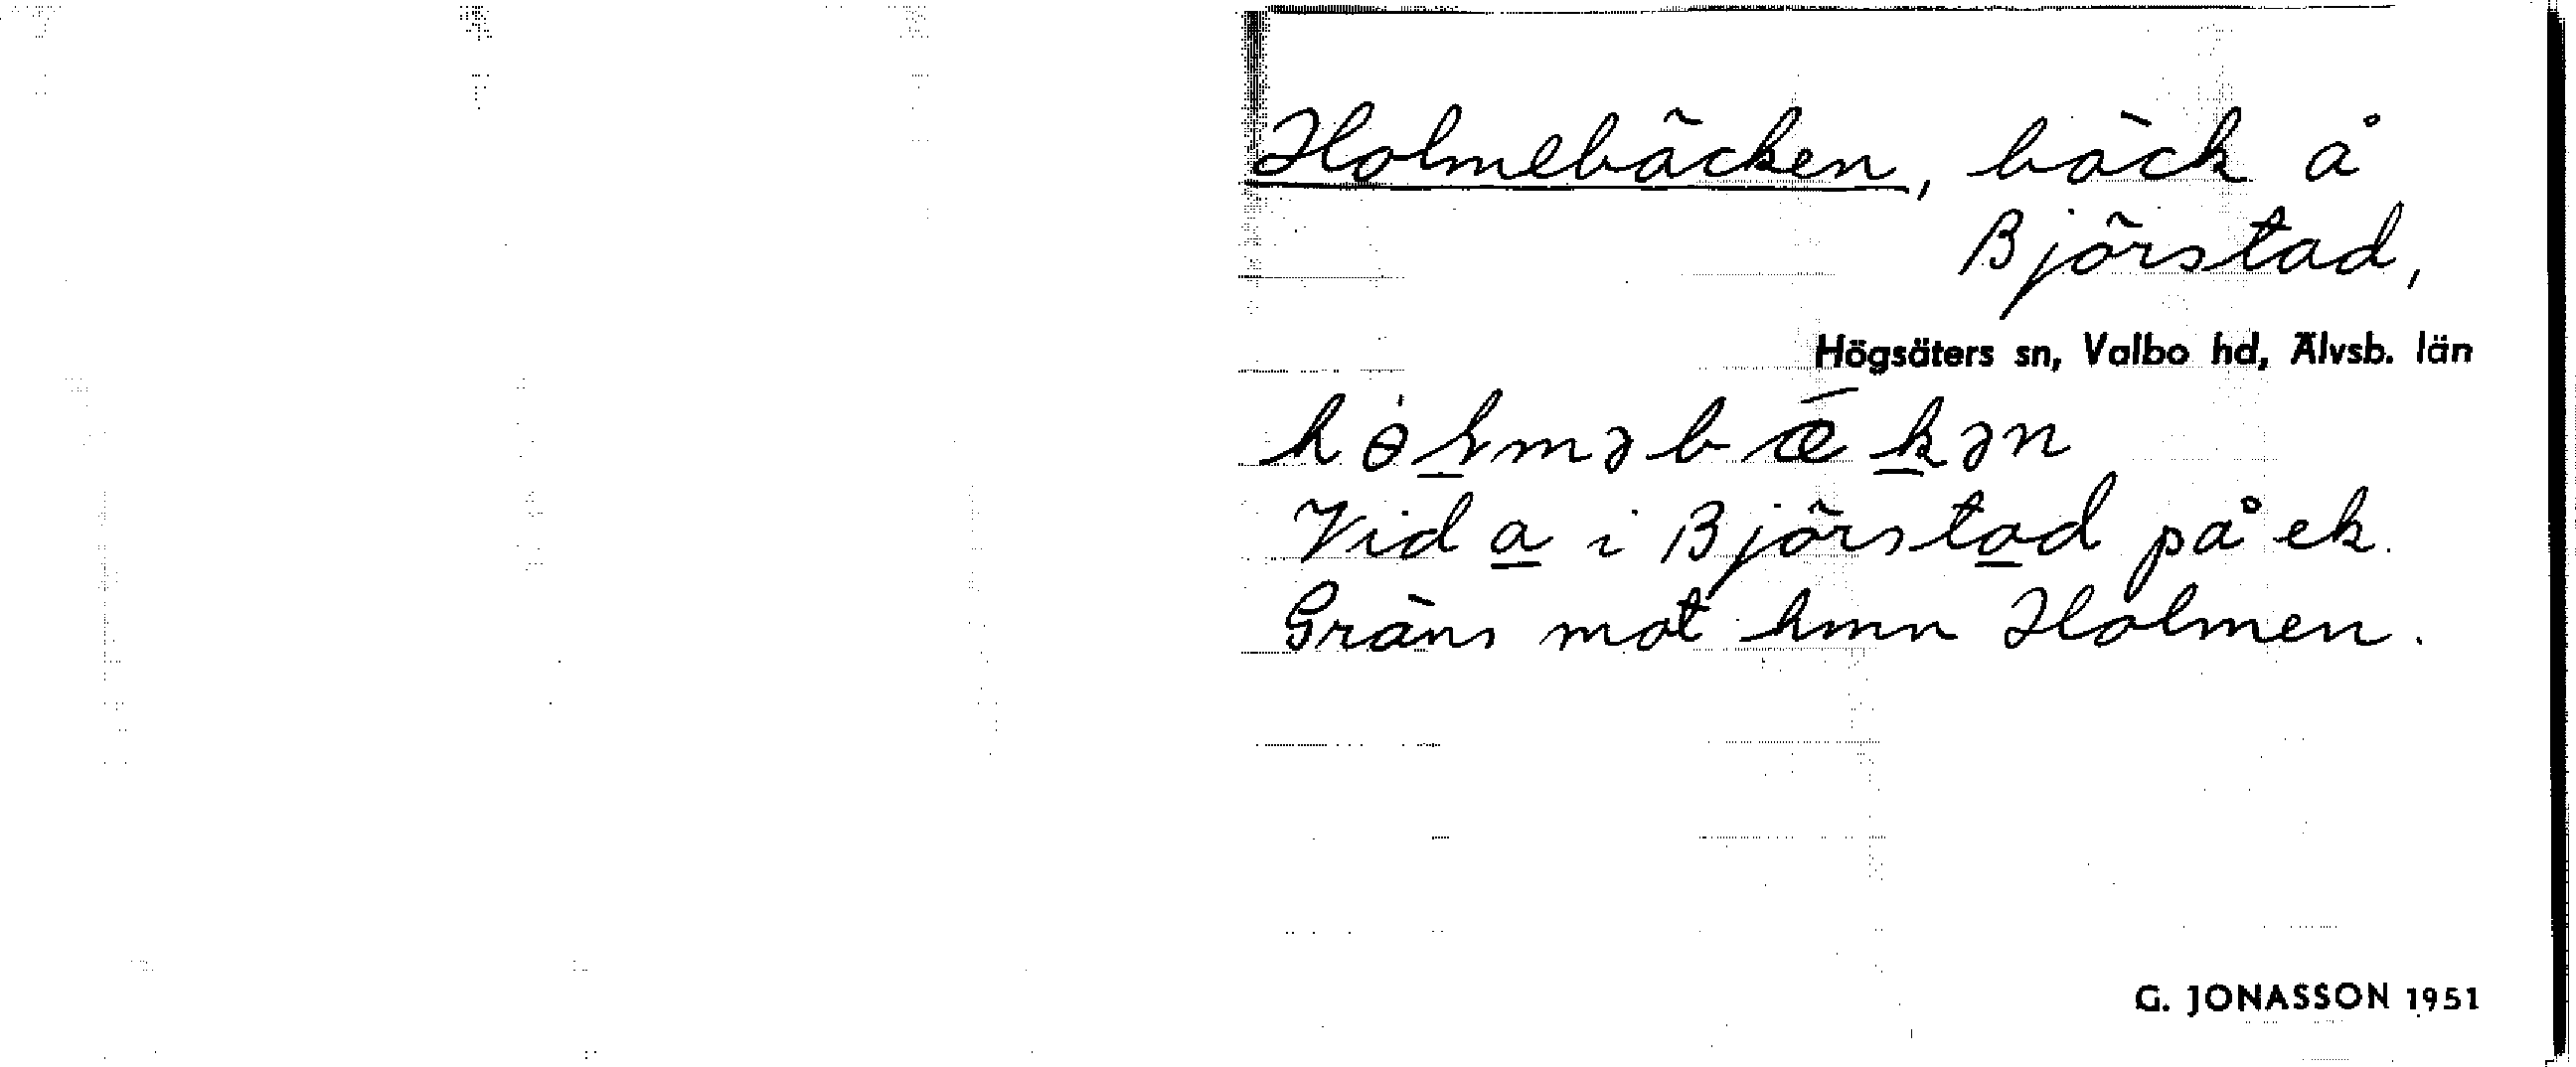 Holmebäcken, bäck å
Björstad,
Högsäters sn, Valbo hd, Älvsb. län
Vid a i Björstad på ek.
Gräns mot hmn Holmen.
G. JONASSON 1951